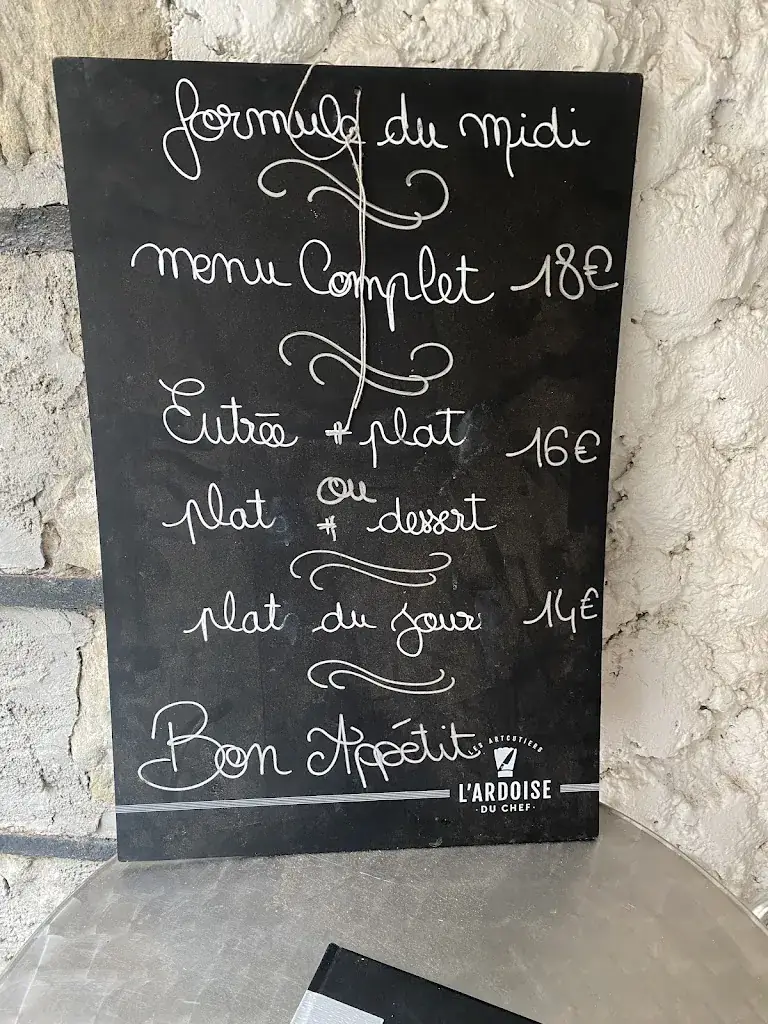 formule du midi
menu Complet 18€
Entrée + plat 16€
ou
plat + dessert
plat du jour 14€
Bon Appétit
LES ARTCUTIERS
L'ARDOISE
·DU CHEF·